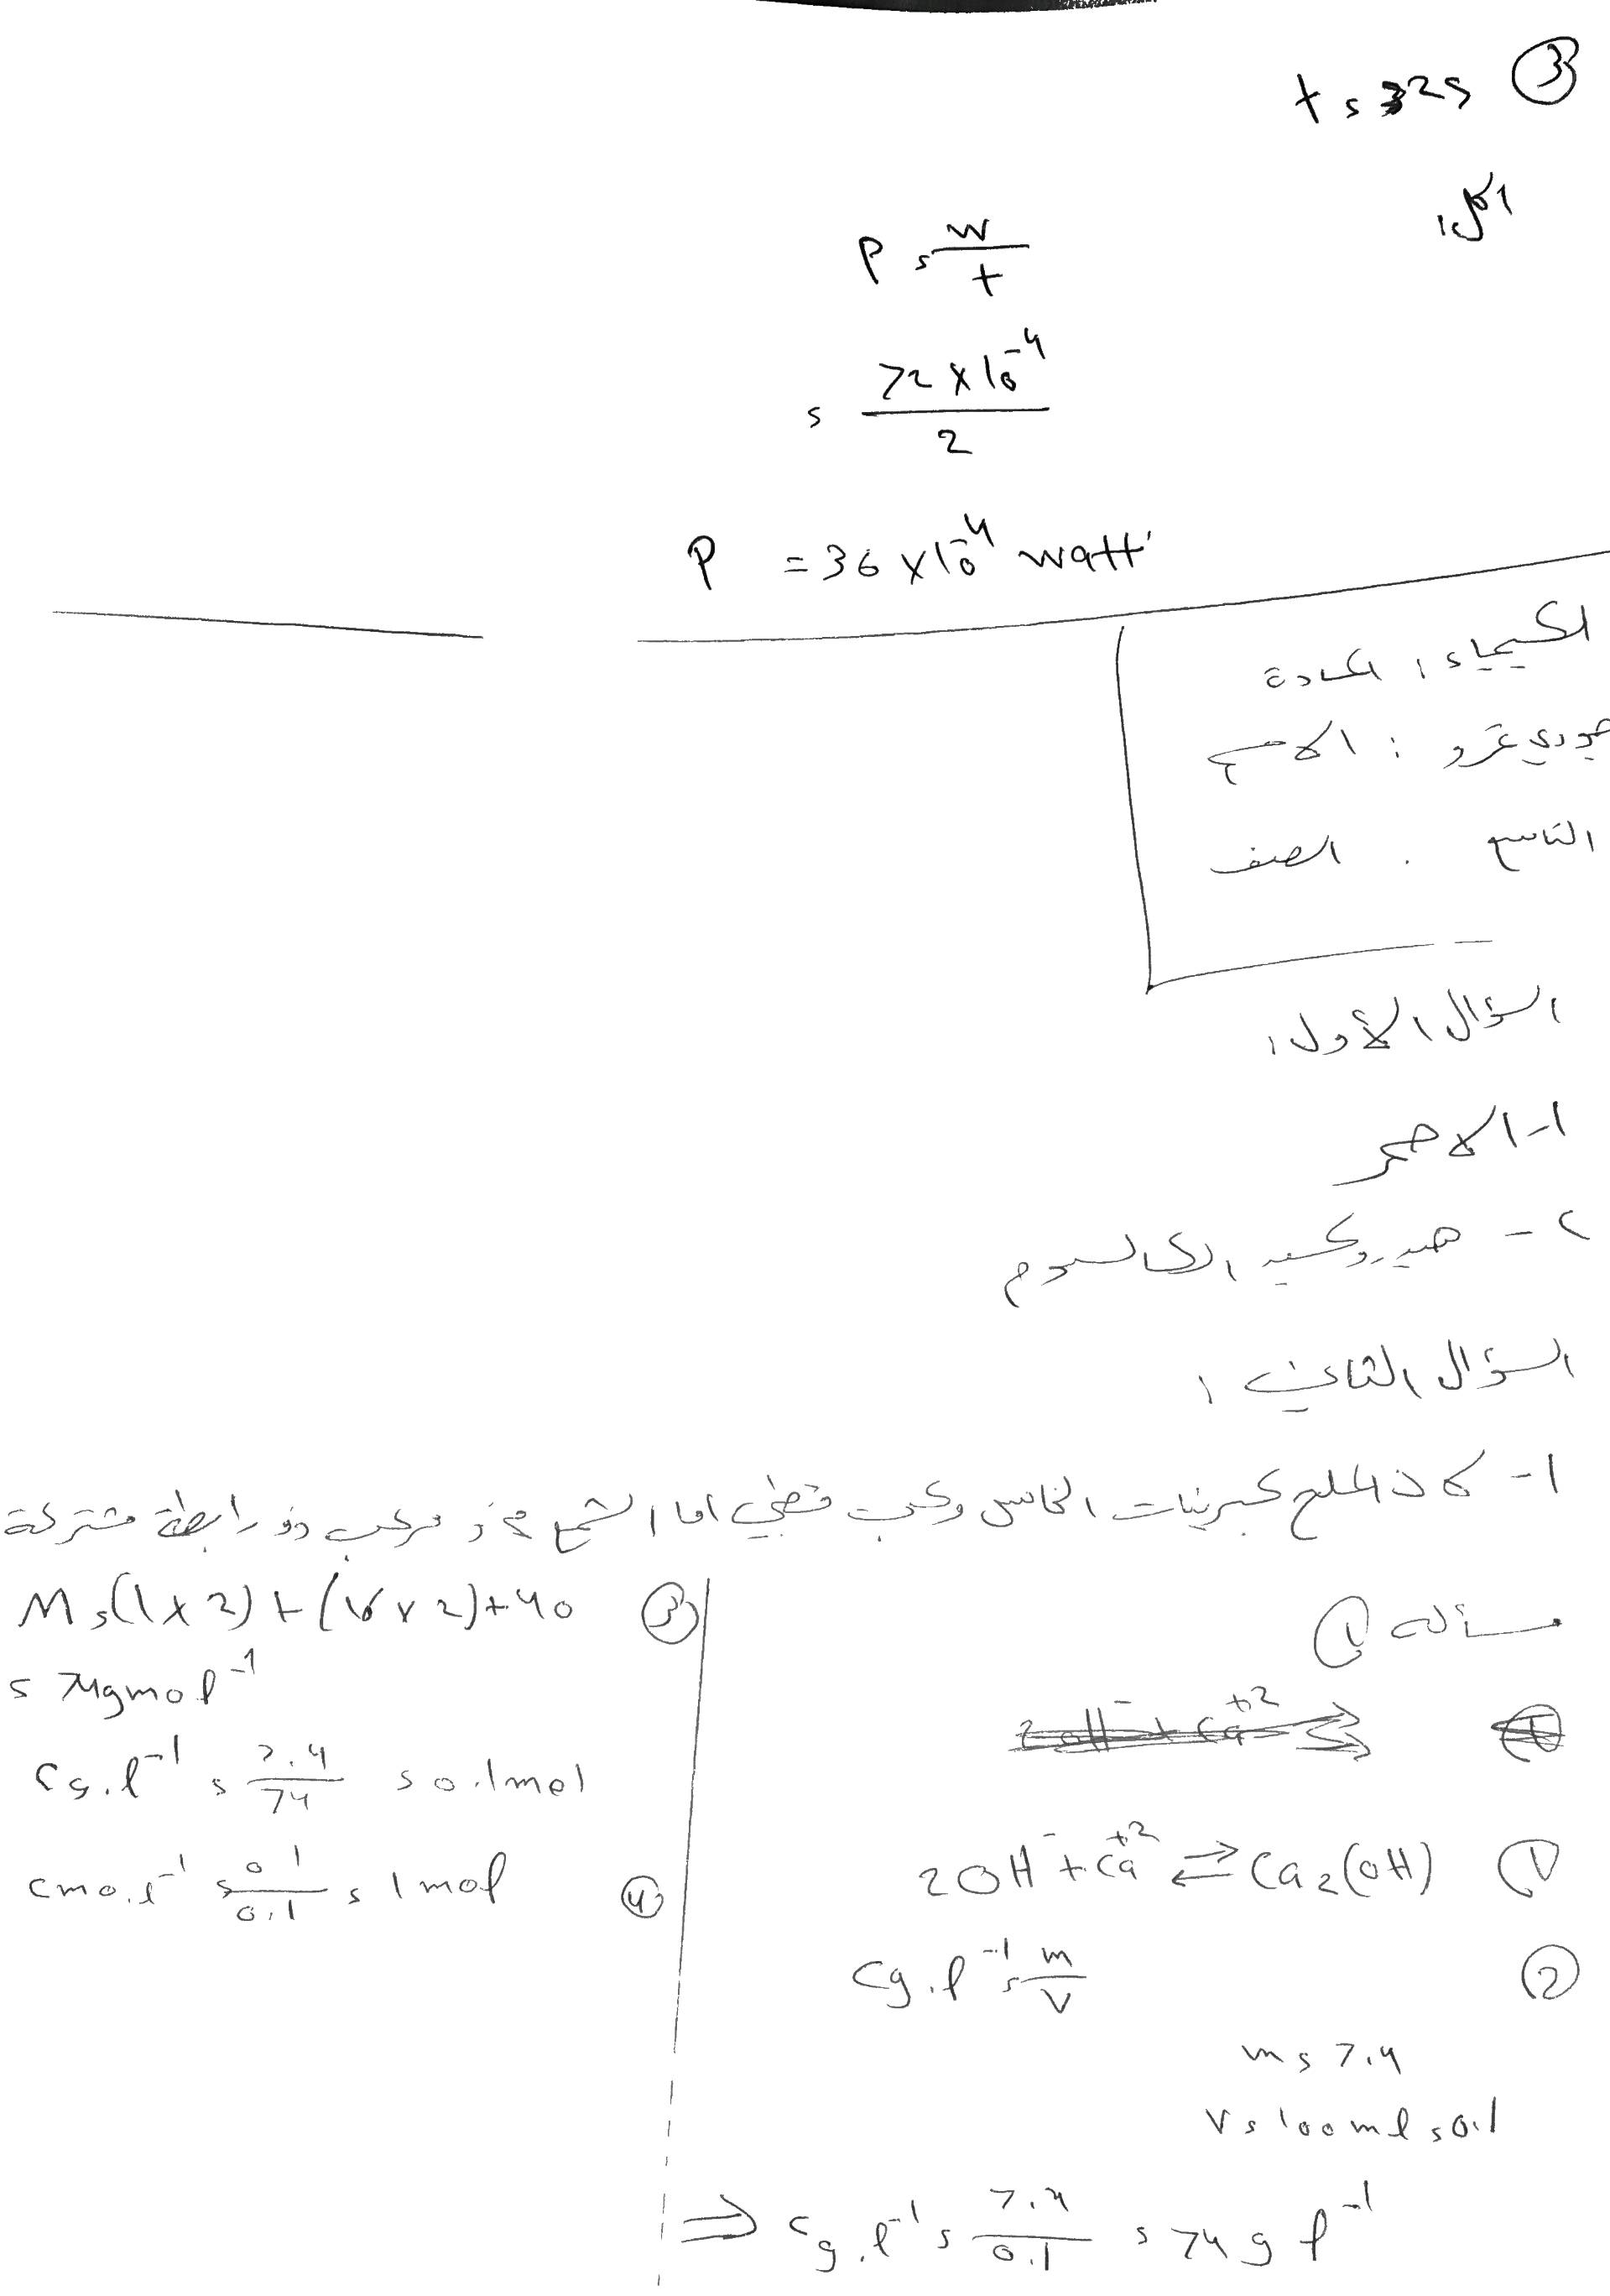 ③ t = 32s
P = w / t
= 72 × 10^-4 / 2
P = 36 × 10^-4 watt
الكيمياء : المادة
الاسم :
التاسع . الصف
السؤال الأول :
1- الاحمر
2- هيدروكسيد الكالسيوم
السؤال الثاني :
1- لان الملح كبريتات النحاس مركب قطبي اما الشمع فهو مركب ذو رابطة مشتركة
مسألة ①
① 2OH^- + Ca^+2 ⇌ Ca2(OH)
② Cg.l^-1 = m / V
m = 7.4
V = 100 ml = 0.1
⇒ Cg.l^-1 = 7.4 / 0.1 = 74 g l^-1
③ M = (1 × 2) + (16 × 2) + 40
= 74 g mol^-1
Cg.l^-1 = 7.4 / 74 = 0.1 mol
④ Cmo.l^-1 = 0.1 / 0.1 = 1 mol